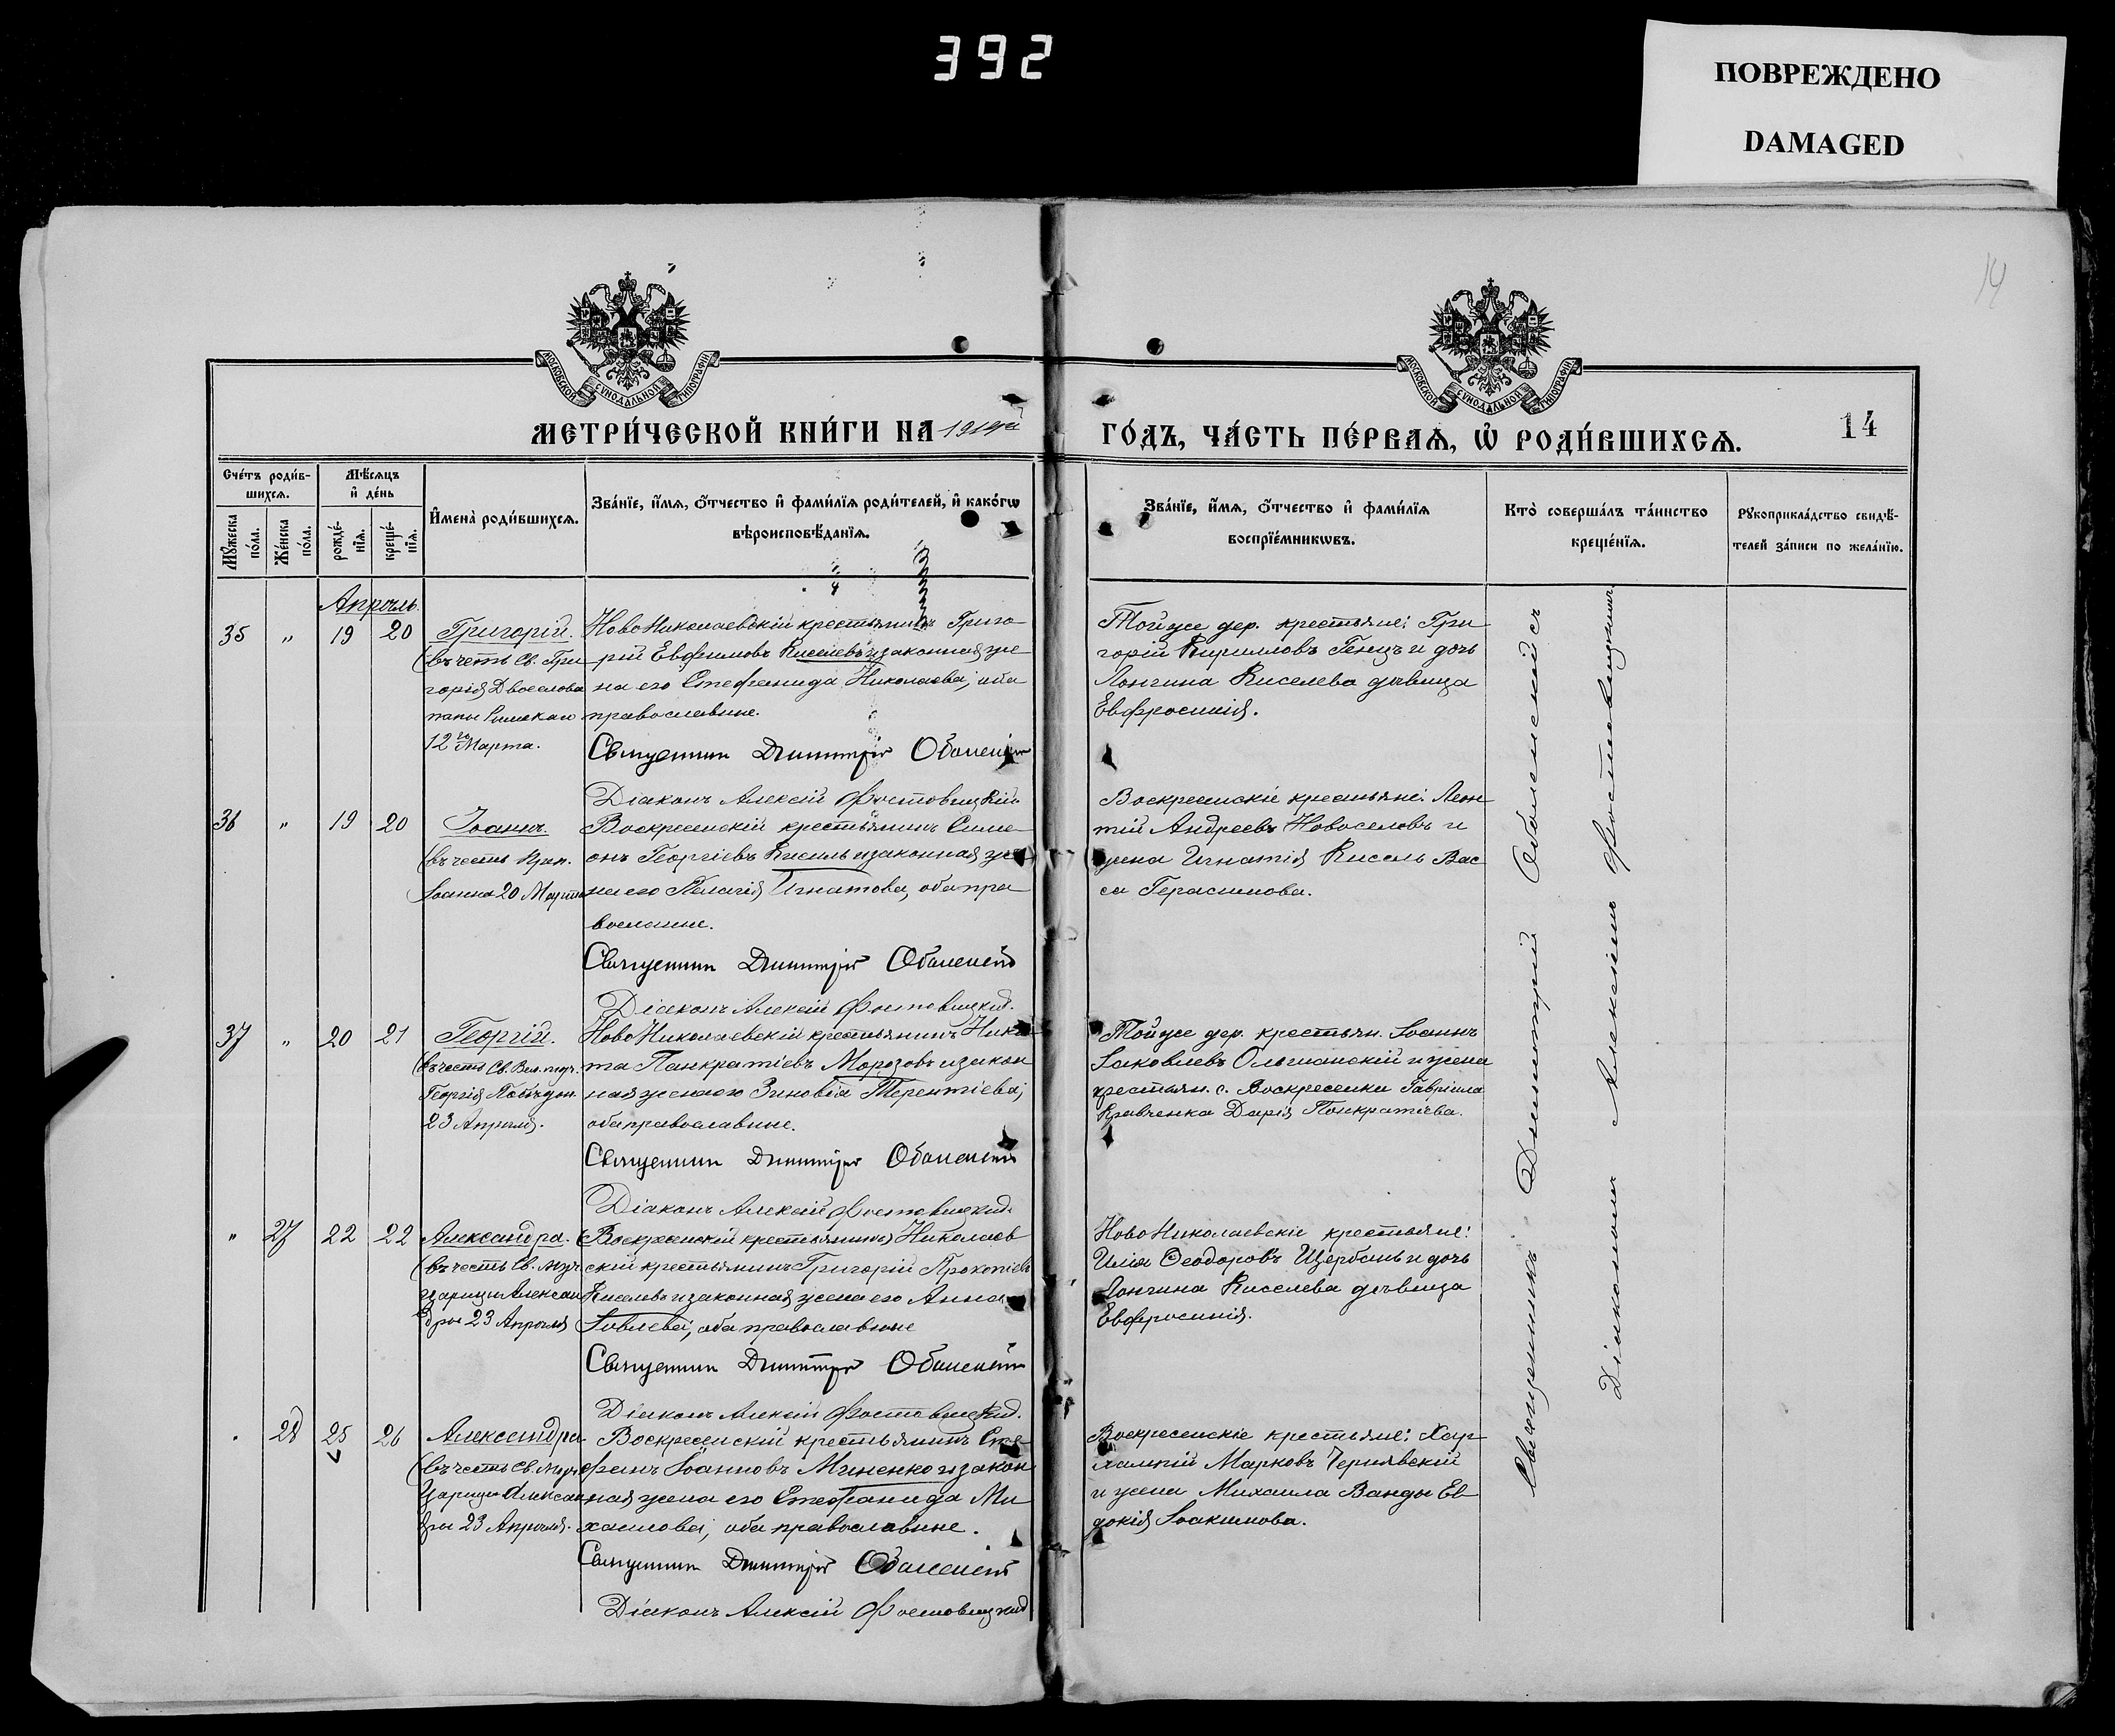 392
ПОВРЕЖДЕНО
DAMAGED
14
МОСКОВСКОЙ СѴНОДАЛЬНОЙ ТИПОГРАФІИ
МОСКОВСКОЙ СѴНОДАЛЬНОЙ ТИПОГРАФІИ
МЕТРИ́ЧЕСКОЙ КНИ́ГИ НА
ГО́ДЪ, ЧА́СТЬ ПЕ́РВАѦ, Ѡ РОДИ́ВШИХСѦ.
14
Сче́тъ роди́в-
шихсѧ.
Мꙋ́жеска по́ла.
Же́нска по́ла.
Мѣ́сѧцъ
и҆ де́нь
рожде́-
нїѧ.
креще́-
нїѧ.
И҆мена̀ роди́вшихсѧ.
Зва́нїе, и҆́мѧ, ѻ҆́тчество и҆ фами́лїѧ роди́телей, и҆ како́гѡ
вѣроисповѣ́данїѧ.
Зва́нїе, и҆́мѧ, ѻ҆́тчество и҆ фами́лїѧ
воспрїе́мникѡвъ.
Кто̀ соверша́лъ та́инство
креще́нїѧ.
Рꙋкоприкла́дство свидѣ́-
телей за́писи по жела́нїю.
Апрѣль.
35 " 19 20
Григорій.
(въ честь Св. Гри
горія Двоеслова
папы Римскаго
12го Марта.
НовоНиколаевскій крестьянинъ Григо-
рій Евфимовъ Киселевъ и законная же
на его Стефанида Николаева, оба
православные.
Священникъ Димитрій Оболенскій
Діаконъ Алексій Фостовицкій
Той же дер. крестьяне: Гри
горій Кирилловъ Генцъ и дочь
Лонгина Киселева дѣвица
Евфросинія.
36 " 19 20
Іоаннъ.
(въ честь Прп.
Іоанна 20 Марта
Воскресенскій крестьянинъ Симе-
онъ Георгіевъ Кисиль и законная же
на его Пелагія Игнатова, оба пра
вославные.
Священникъ Димитрій Оболенскій
Діаконъ Алексій Фостовицкій.
Воскресенскіе крестьяне: Леон
тій Андреевъ Новоселовъ и
жена Игнатія Кисель Вас
са Герасимова.
37 " 20 21
Георгій.
(въ честь Св. Вел. муч.
Георгія Побѣдон.
23 Апрѣля.
НовоНиколаевскій крестьянинъ Ники
та Панкратіевъ Морозовъ и закон
ная жена его Зиновія Терентіева,
оба православные.
Священникъ Димитрій Оболенскій
Діаконъ Алексій Фостовицкій.
Той же дер. крестьян. Іоаннъ
Іаковлевъ Ольшанскій и жена
крестьян. с. Воскресенки Гавріила
Кравченка Дарія Панкратіева.
" 27 22 22
Александра.
(въ честь Св. муч
царицы Алексан
дры 23 Апрѣля
Воскресенскій крестьянинъ Николаев
скій крестьянинъ Григорій Прокопіевъ
Киселевъ и законная жена его Анна
Іовлева, оба православные
Священникъ Димитрій Оболенскій
Діаконъ Алексій Фостовицкій.
НовоНиколаевскіе крестьяне:
Илія Ѳеодоровъ Щербань и дочь
Лонгина Киселева дѣвица
Евфросинія.
28 25 26
Александра
(въ честь Св. Муч
Царицы Алексан
дры 23 Апрѣля.
Воскресенскій крестьянинъ Сте-
фанъ Іоанновъ Миненко и закон
ная жена его Стефанида Ми
хаилова, оба православные.
Священникъ Димитрій Оболенскій
Діаконъ Алексій Фостовицкій
Воскресенскіе крестьяне: Хар
лампій Марковъ Чернявскій
и жена Михаила Ванды Ев
докія Іоакимова.
Священникъ Димитрій Оболенскій съ
Діакономъ Алексіемъ Фостовицкимъ